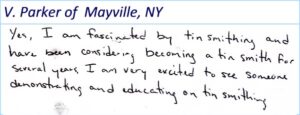 V. Parker of Mayville, NY
Yes, I am fascinated by tin smithing and
have been considering becoming a tin smith for
several years, I am very excited to see someone
demonstrating and educating on tin smithing